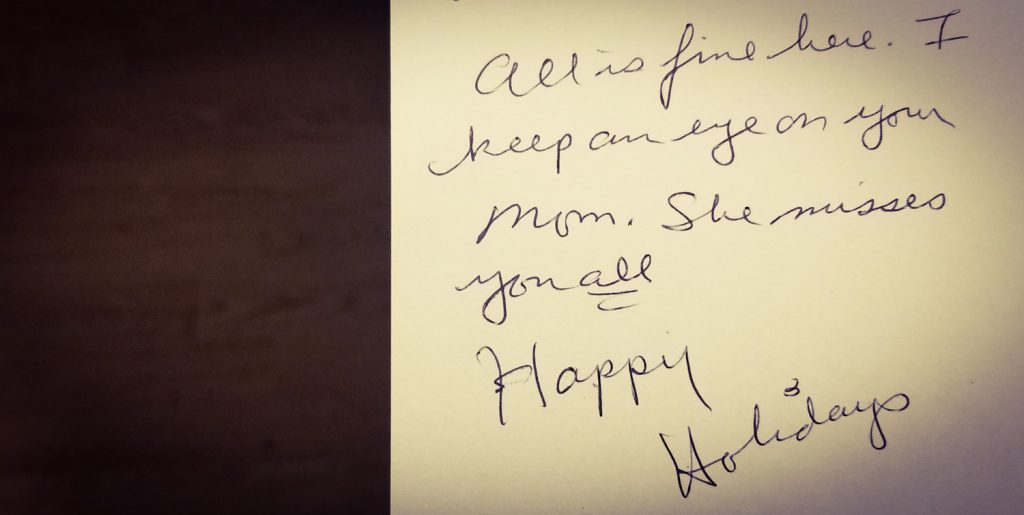 All is fine here. I
keep an eye on your
Mom. She misses
you all
Happy
Holidays